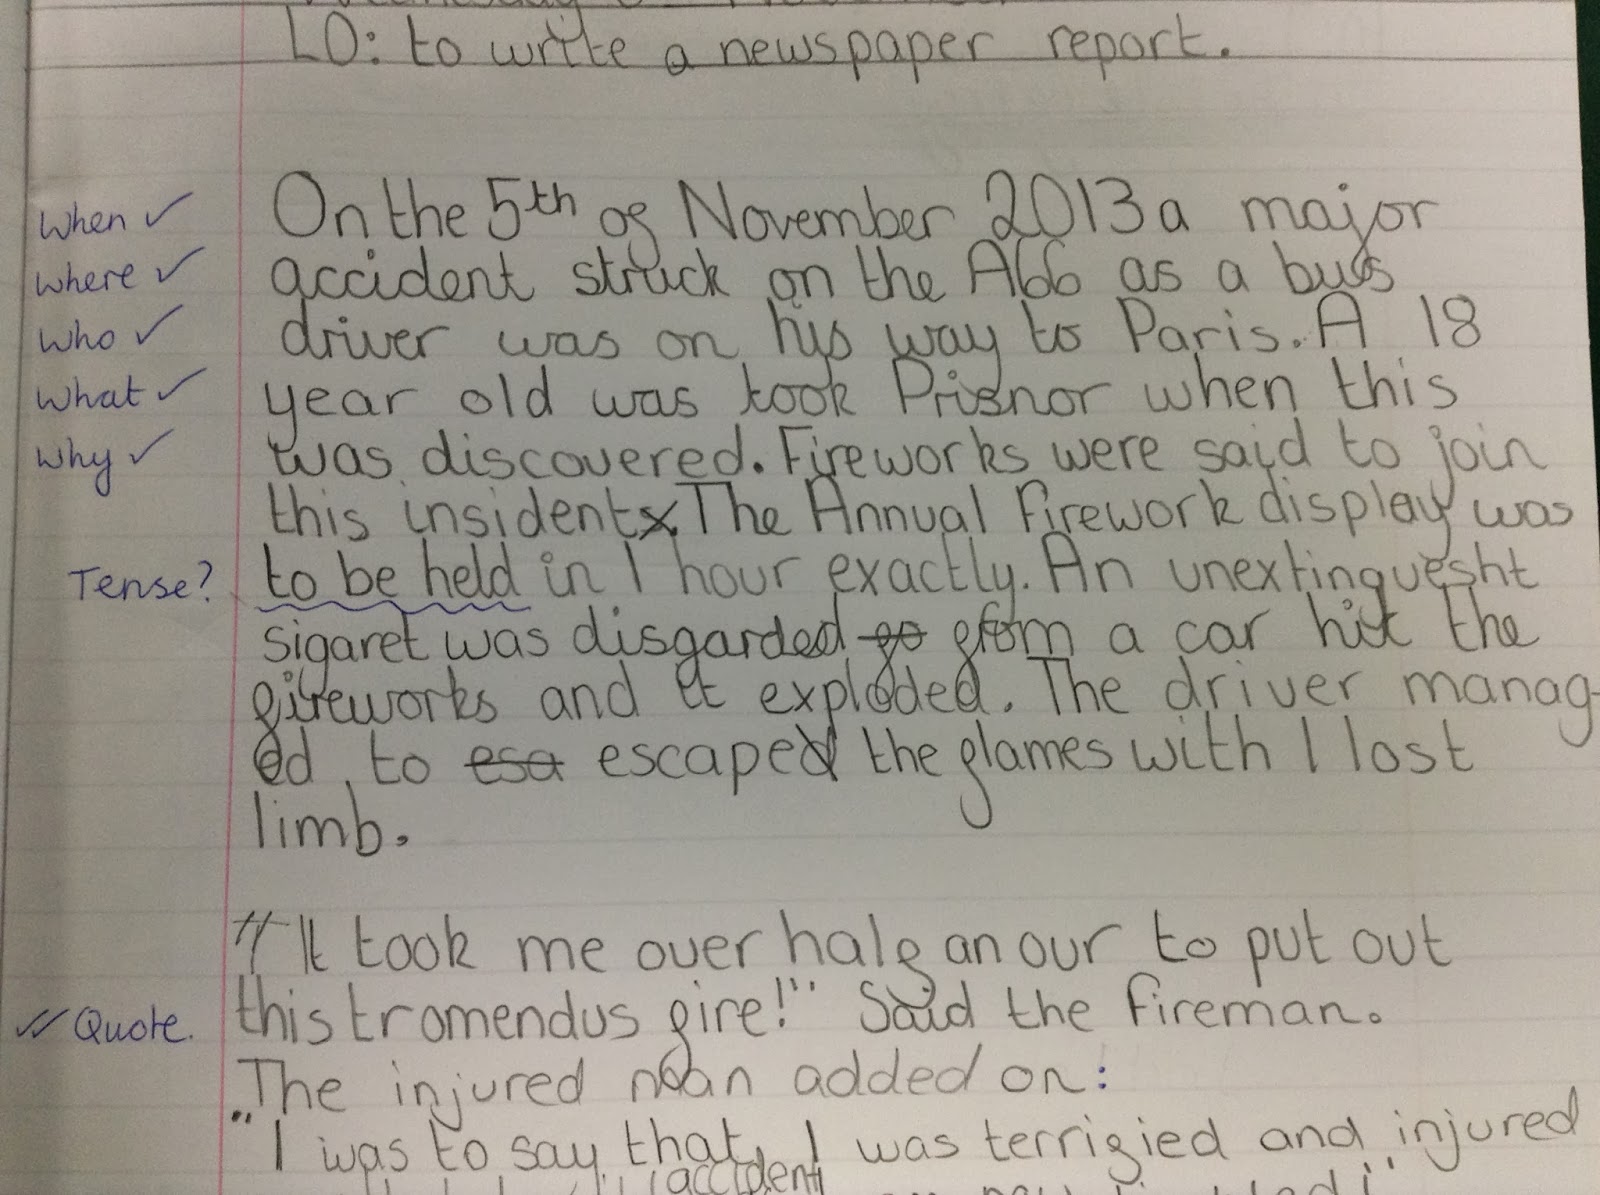 LO: to write a newspaper report.
When ✓ On the 5th of November 2013 a major
Where ✓ accident struck on the A66 as a bus
Who ✓ driver was on his way to Paris. A 18
What ✓ year old was took Prisnor when this
Why ✓ was discovered. Fireworks were said to join
this insident. The Annual Firework display was
Tense? to be held in 1 hour exactly. An unextinguesht
sigaret was disgarded go from a car hit the
fireworks and it exploded. The driver manag-
ed to esa escaped the flames with 1 lost
limb.
"It took me over half an our to put out
✓✓ Quote. this tromendus fire!" Said the fireman.
The injured man added on:
"I was to say that, I was terrified and injured
accident